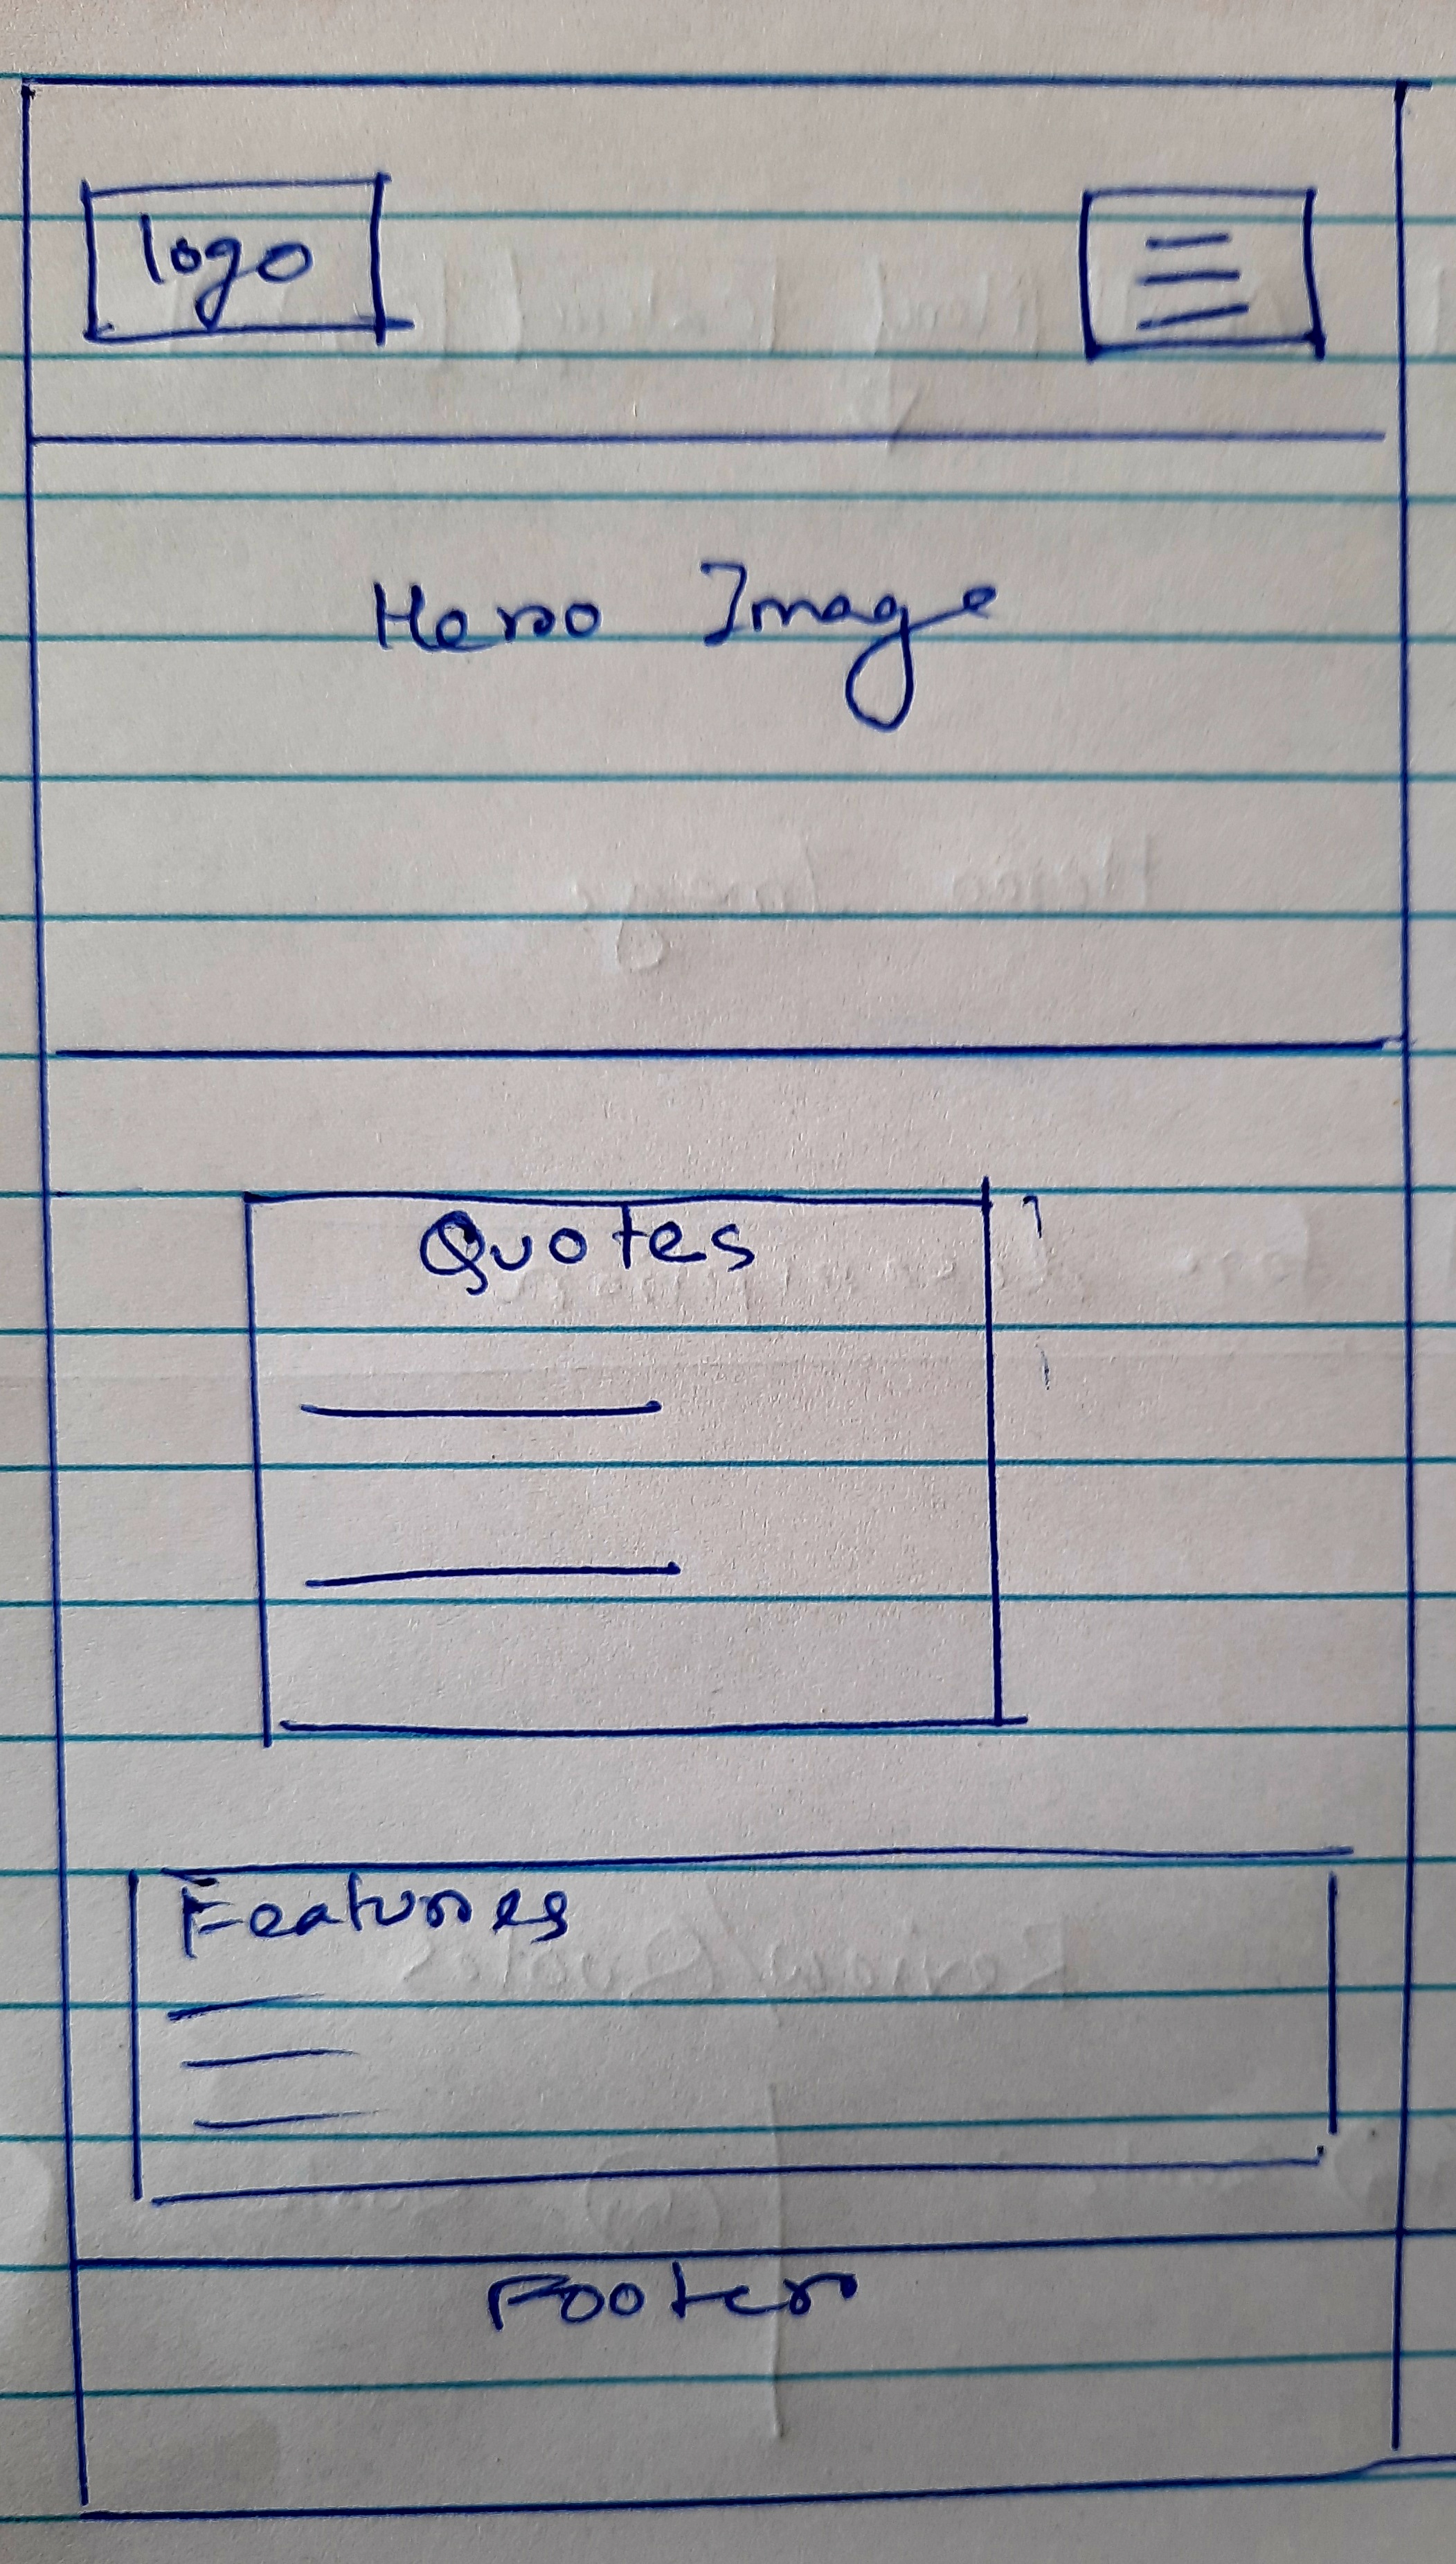 logo
Hero Image
Quotes
Features
Footer